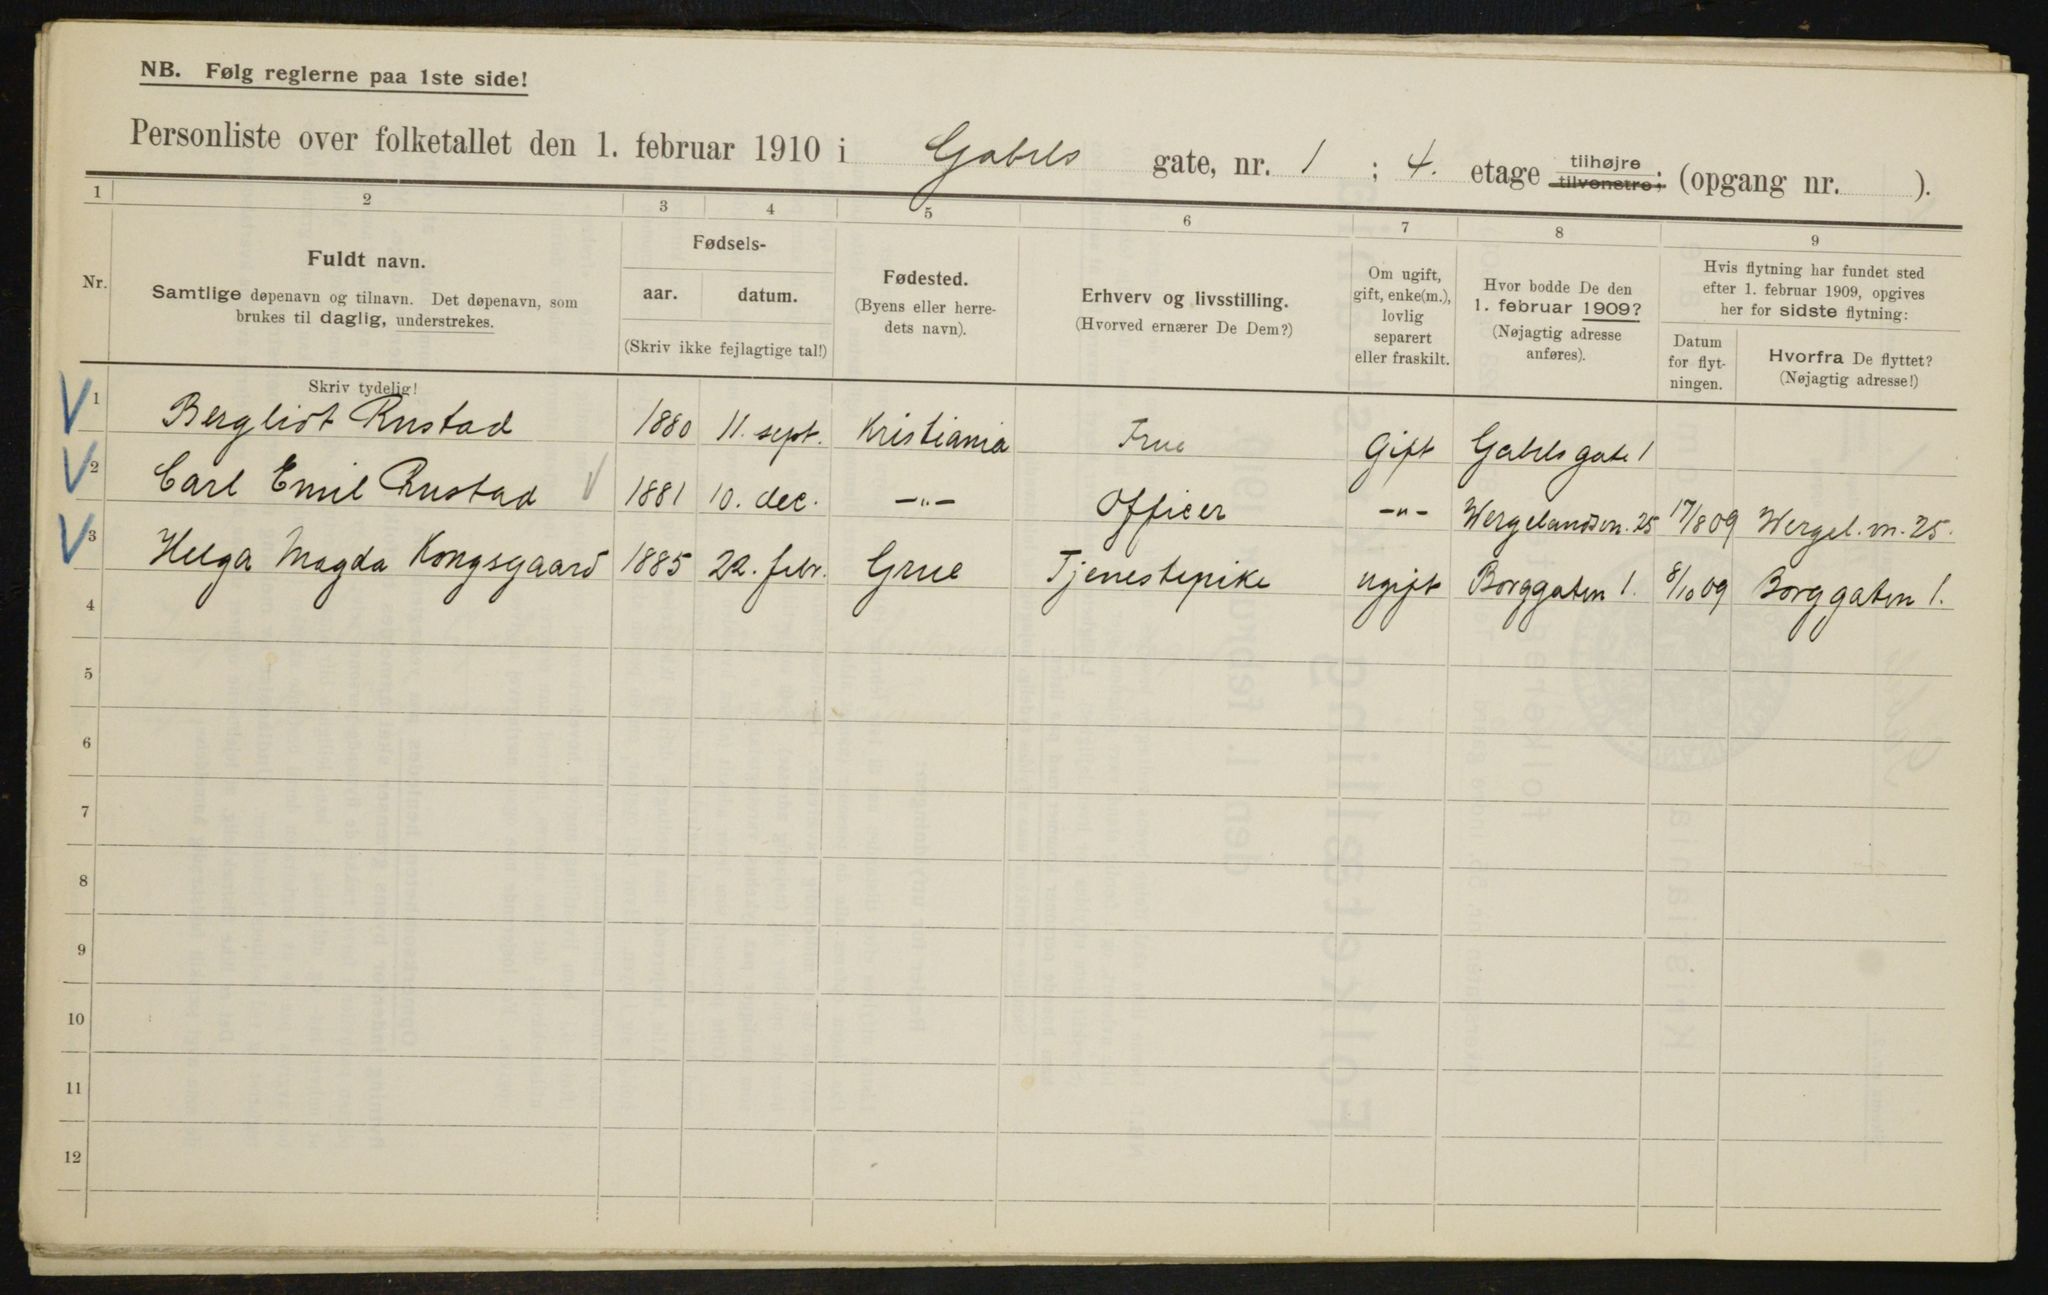 NB. Følg reglerne paa 1ste side!
Personliste over folketallet den 1. februar 1910 i Gabels gate, nr. 1 ; 4. etage tilhøjre tilvenstre; (opgang nr. ).
1 2 3 4 5 6 7 8 9
Nr.
Fuldt navn.
Samtlige døpenavn og tilnavn. Det døpenavn, som
brukes til daglig, understrekes.
Skriv tydelig!
Fødsels-
aar. datum.
(Skriv ikke fejlagtige tal!)
Fødested.
(Byens eller herre-
dets navn).
Erhverv og livsstilling.
(Hvorved ernærer De Dem?)
Om ugift,
gift, enke(m.),
lovlig
separert
eller fraskilt.
Hvor bodde De den
1. februar 1909?
(Nøjagtig adresse
anføres).
Hvis flytning har fundet sted
efter 1. februar 1909, opgives
her for sidste flytning:
Datum
for flyt-
ningen.
Hvorfra De flyttet?
(Nøjagtig adresse!)
1 Bergliot Rustad 1880 11. sept. Kristiania Frue Gift Gabels gate 1
2 Carl Emil Rustad 1881 10. dec. -"- Officer -"- Wergelandsvn. 25 17/8 09 Wergel. vn. 25.
3 Helga Magda Kongsgaard 1885 22. febr. Grue Tjenestepike ugift Borggaten 1. 8/10 09 Borggaten 1.
4
5
6
7
8
9
10
11
12